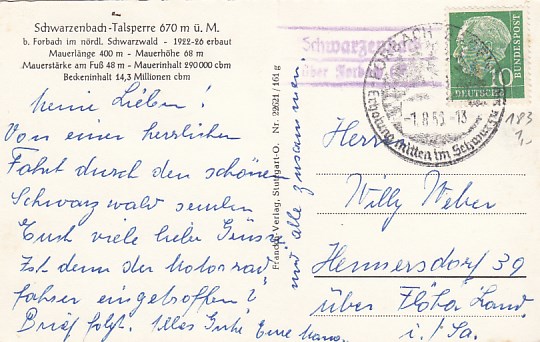 Schwarzenbach-Talsperre 670 m ü. M.
b. Forbach im nördl. Schwarzwald - 1922-26 erbaut
Mauerlänge 400 m - Mauerhöhe 68 m
Mauerstärke am Fuß 48 m - Mauerinhalt 290 000 cbm
Beckeninhalt 14,3 Millionen cbm
Meine Lieben!
Von einer herrlichen
Fahrt durch den schönen
Schwarzwald senden
Euch viele liebe Grüsse
Ist denn der Motorrad
fahrer eingetroffen?
Brief folgt. Alles Gute Eure
und alle zusammen.
Franckh-Verlag, Stuttgart-O. Nr. 22621 / 161 g
Schwarzenbach
über Forbach
FORBACH
Erholung mitten im Schwarzw
-1.8.53-13
10
DEUTSCHE
BUNDESPOST
183
1,-
Herrn
Willy Weber
Hennersdorf 39
über Flöha Land.
i./Sa.